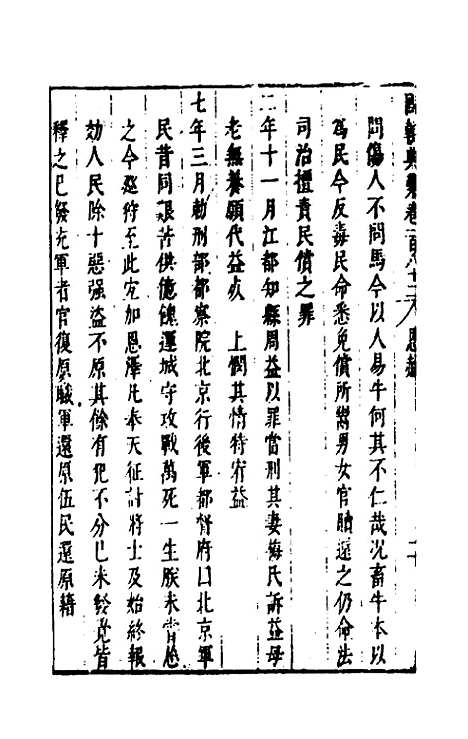 國朝典彙卷一百八十二 恩赦
問傷人不問馬今以人易牛何其不仁哉況畜牛本以
為民今反毒民命悉免償所鬻男女官贖還之仍命法
司治擅責民償之罪
二年十一月江都知縣周益以罪當刑其妻梅氏訴益母
老無養願代益死 上憫其情特宥益
七年三月勅刑部都察院北京行後軍都督府曰北京軍
民昔同艱苦供億餽運城守攻戰萬死一生朕未嘗忘
之今廵狩至此宜加恩澤凡奉天征討將士及始終報
効人民除十惡强盗不原其餘有犯不分已未發覺皆
釋之已發充軍者官復原職軍還原伍民還原籍